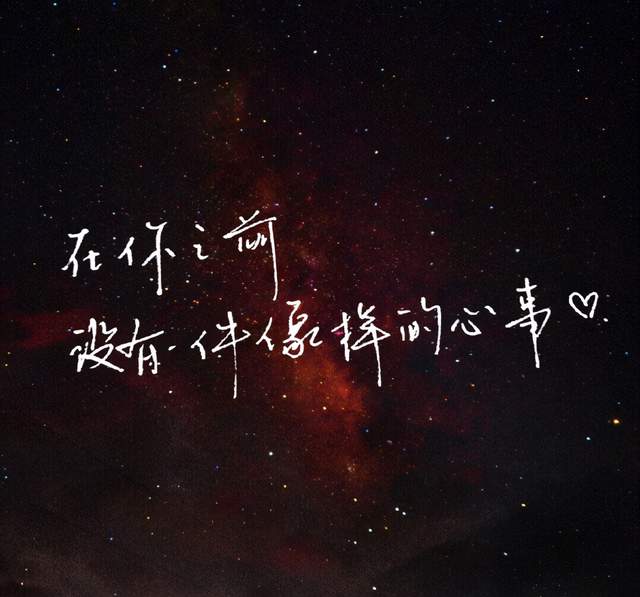 在你之前
没有一件像样的心事♡